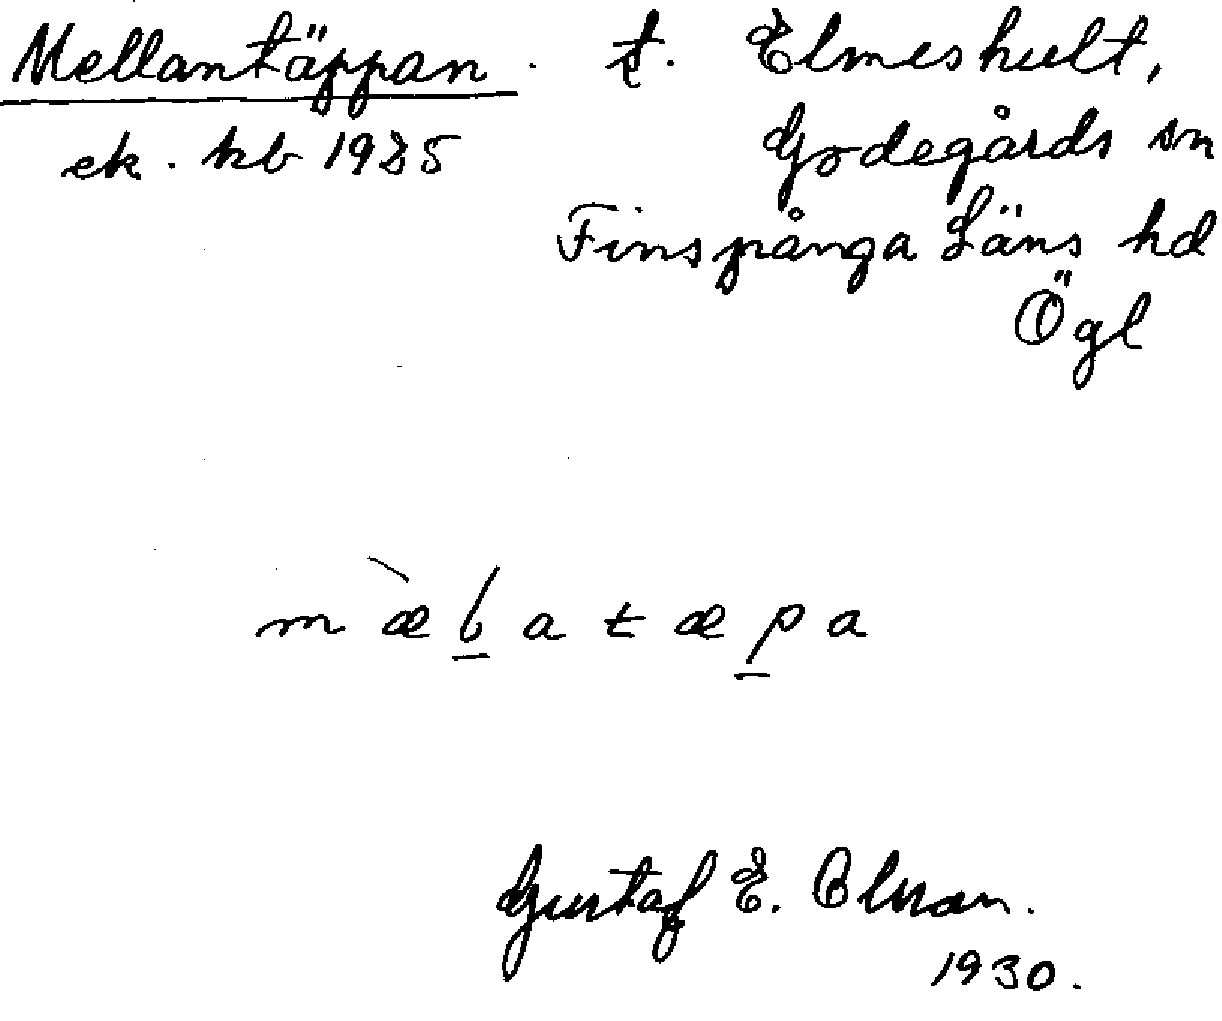 Mellantäppan. t. Elmeshult,
ek. kb 1925 Godegårds sn
Finspånga Läns hd
Ögl
mæ̀b̲atæp̲a
Gustaf E. Olsson.
1930.